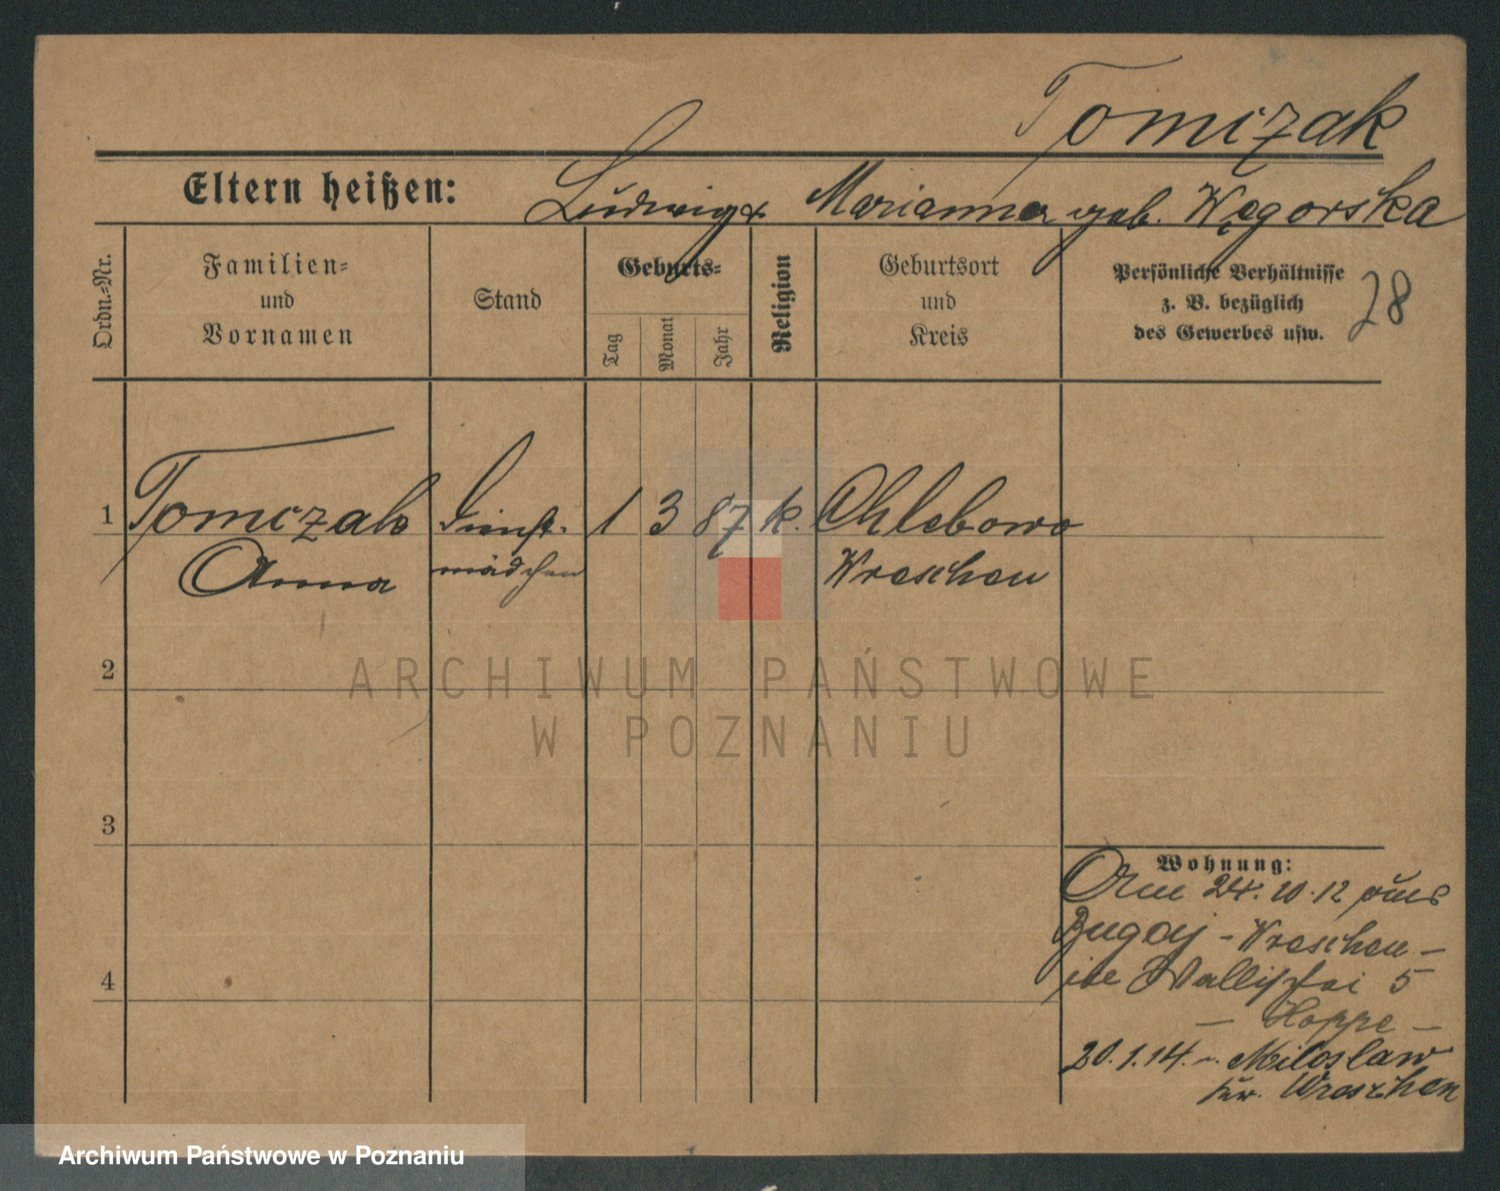 Tomczak
Eltern heißen: Ludwig & Marianna geb. Węgorska
Ordn.-Nr.
Familien-
und
Vornamen
Stand
Geburts-
Tag
Monat
Jahr
Religion
Geburtsort
und
Kreis
Persönliche Verhältnisse
z. B. bezüglich
des Gewerbes usw.
28
1 Tomczak Dienst- 1 3 87 k. Chlebowo
Anna mädchen Wreschen
2
3
4
Wohnung:
Am 24.10.12 aus
Bugaj - Wreschen -
in Wallischei 5
- Hoppe -
20.1.14. n. Miloslaw
Kr. Wreschen
ARCHIWUM PAŃSTWOWE
W POZNANIU
Archiwum Państwowe w Poznaniu